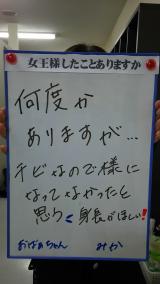 女王様したことありますか
何度か
ありますが…
チビなので様に
なってなかったと
思う＜身長がほしい!
おばぁちゃん みか